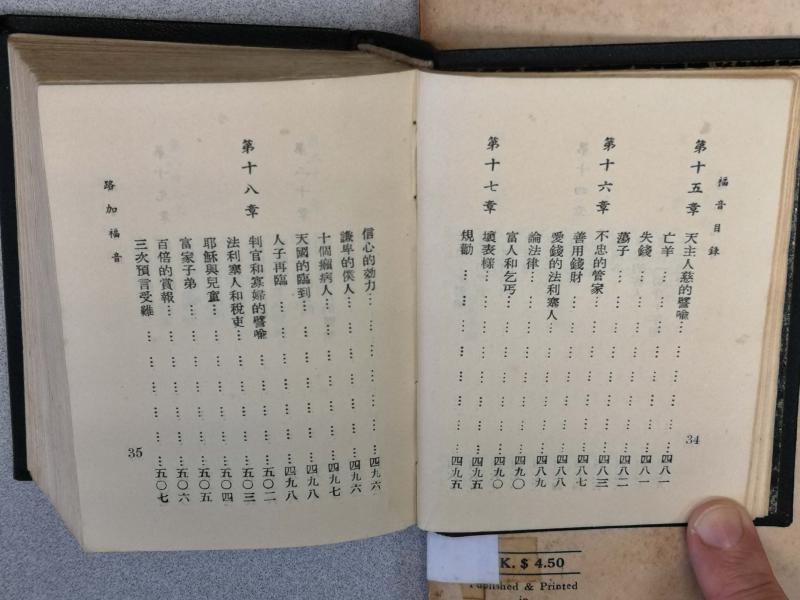 福音目錄
第十五章
天主人慈的譬喻…四八一
亡羊…四八一
失錢…四八一
蕩子…四八二
第十六章
不忠的管家…四八三
善用錢財…四八七
愛錢的法利塞人…四八八
論法律…四八九
富人和乞丐…四九〇
第十七章
壞表樣…四九五
規勸…四九五
34
信心的効力…四九六
謙卑的僕人…四九六
十個癩病人…四九七
天國的臨到…四九八
人子再臨…四九八
第十八章
判官和寡婦的譬喻…五〇二
法利塞人和稅吏…五〇三
耶穌與兒童…五〇四
富家子弟…五〇五
百倍的賞報…五〇六
三次預言受難…五〇七
路加福音
35
K. $ 4.50
Published & Printed
in